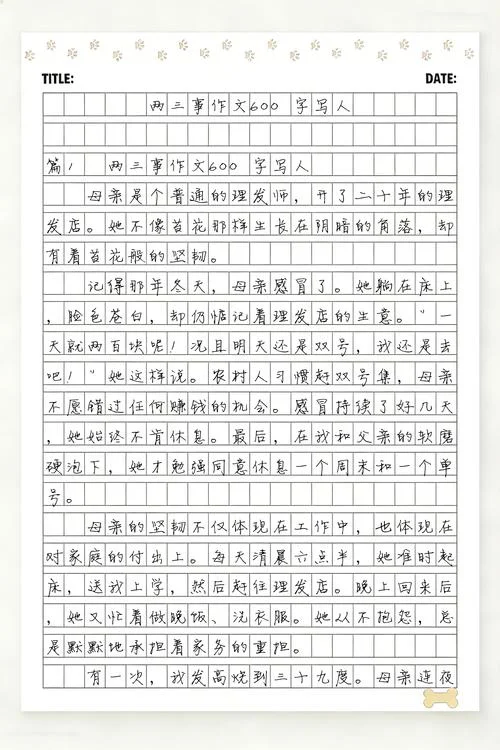 TITLE: DATE:
两三事作文600 字写人
篇1 两三事作文600 字写人
母亲是个普通的理发师，开了二十年的理
发店。她不像苔花那样生长在阴暗的角落，却
有着苔花般的坚韧。
记得那年冬天，母亲感冒了。她躺在床上
，脸色苍白，却仍惦记着理发店的生意。"一
天就两百块呢！况且明天还是双号，我还是去
吧！"她这样说。农村人习惯赶双号集，母亲
不愿错过任何赚钱的机会。感冒持续了好几天
，她始终不肯休息。最后，在我和父亲的软磨
硬泡下，她才勉强同意休息一个周末和一个单
号。
母亲的坚韧不仅体现在工作中，也体现在
对家庭的付出上。每天清晨六点半，她准时起
床，送我上学，然后赶往理发店。晚上回来后
，她又忙着做晚饭、洗衣服。她从不抱怨，总
是默默地承担着家务的重担。
有一次，我发高烧到三十九度。母亲连夜